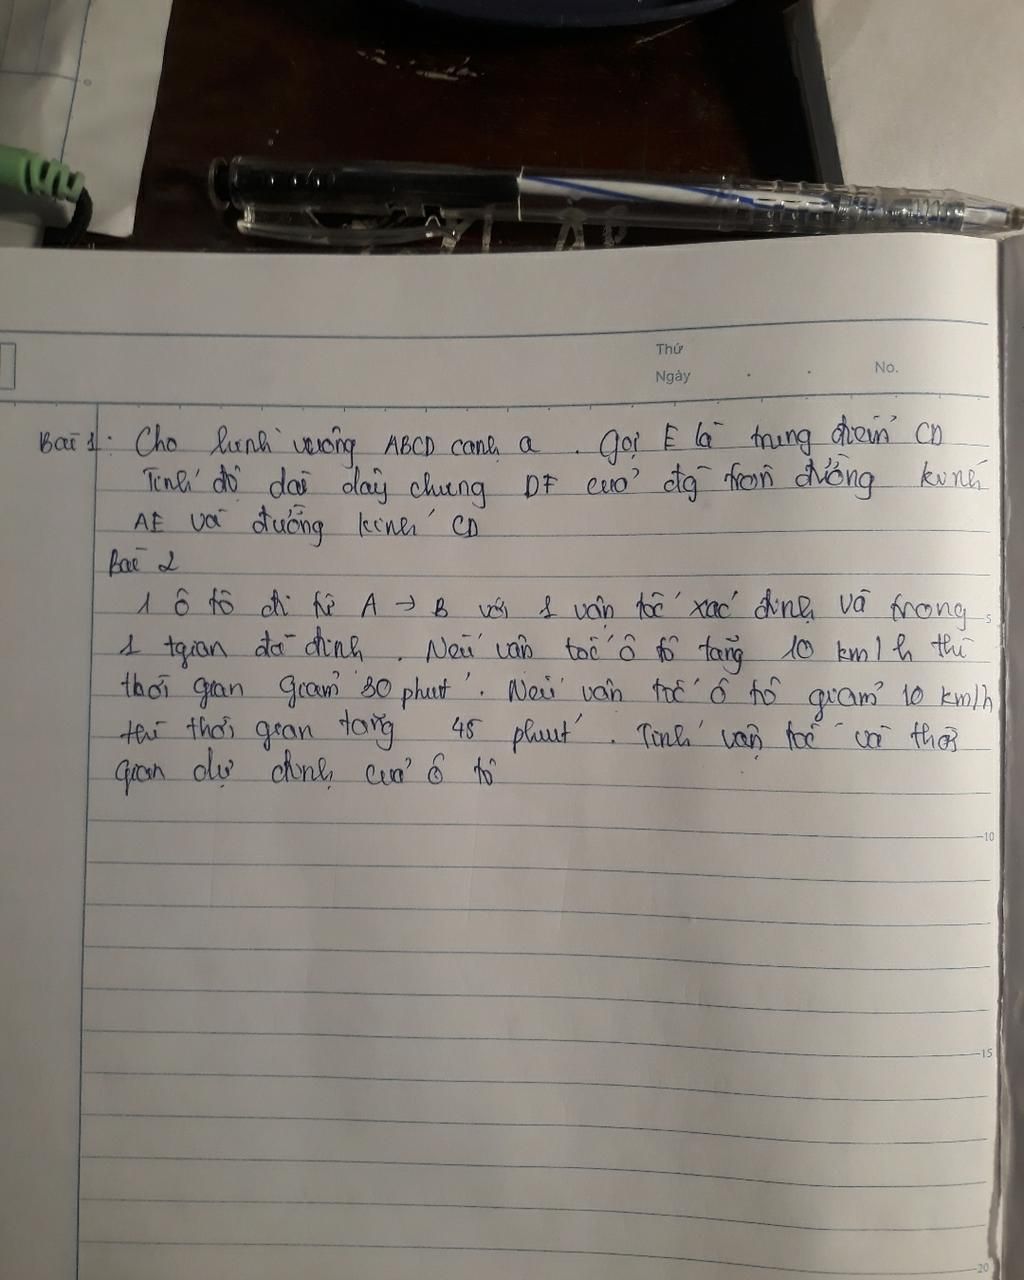 Thứ
Ngày . . No.
Bài 1: Cho hình vuông ABCD cạnh a . Gọi E là trung điểm CD
Tính độ dài dây chung DF của đg tròn đường kính
AE và đường kính CD
Bài 2
1 ô tô đi từ A → B với 1 vận tốc xác định và trong
1 tgian đã định . Nếu vận tốc ô tô tăng 10 km/h thì
thời gian giảm 30 phút . Nếu vận tốc ô tô giảm 10 km/h
thì thời gian tăng 45 phút . Tính vận tốc và thời
gian dự định của ô tô
5
10
15
20